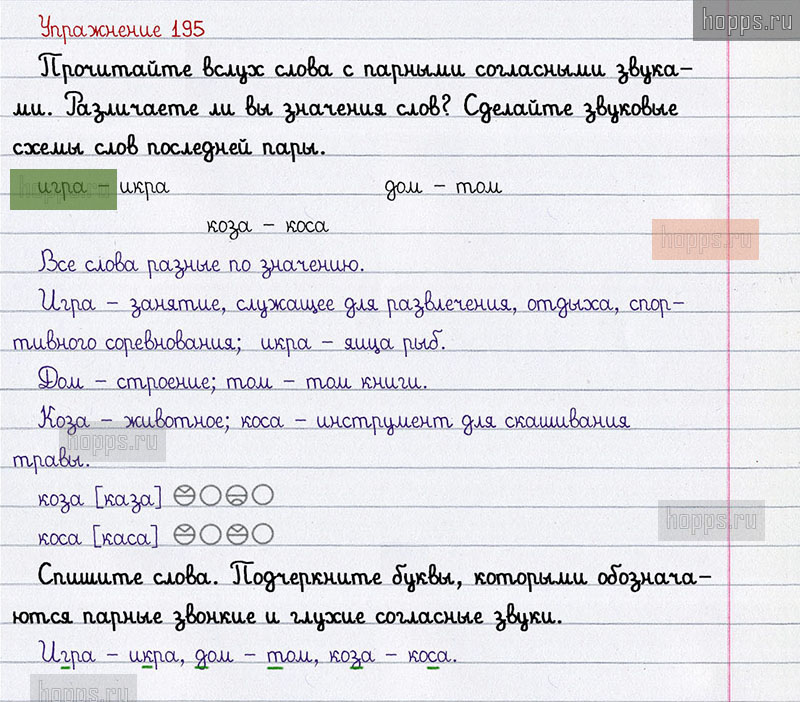 hopps.ru
Упражнение 195
Прочитайте вслух слова с парными согласными звука-
ми. Различаете ли вы значения слов? Сделайте звуковые
схемы слов последней пары.
игра – икра дом – том
hopps.ru
коза – коса
hopps.ru
Все слова разные по значению.
Игра – занятие, служащее для развлечения, отдыха, спор-
тивного соревнования; икра – яица рыб.
Дом – строение; том – том книги.
Коза – животное; коса – инструмент для скашивания
hopps.ru
травы.
коза [каза]
hopps.ru
коса [каса]
Спишите слова. Подчеркните буквы, которыми обознача-
ются парные звонкие и глухие согласные звуки.
Игра – икра, дом – том, коза – коса.
hopps.ru